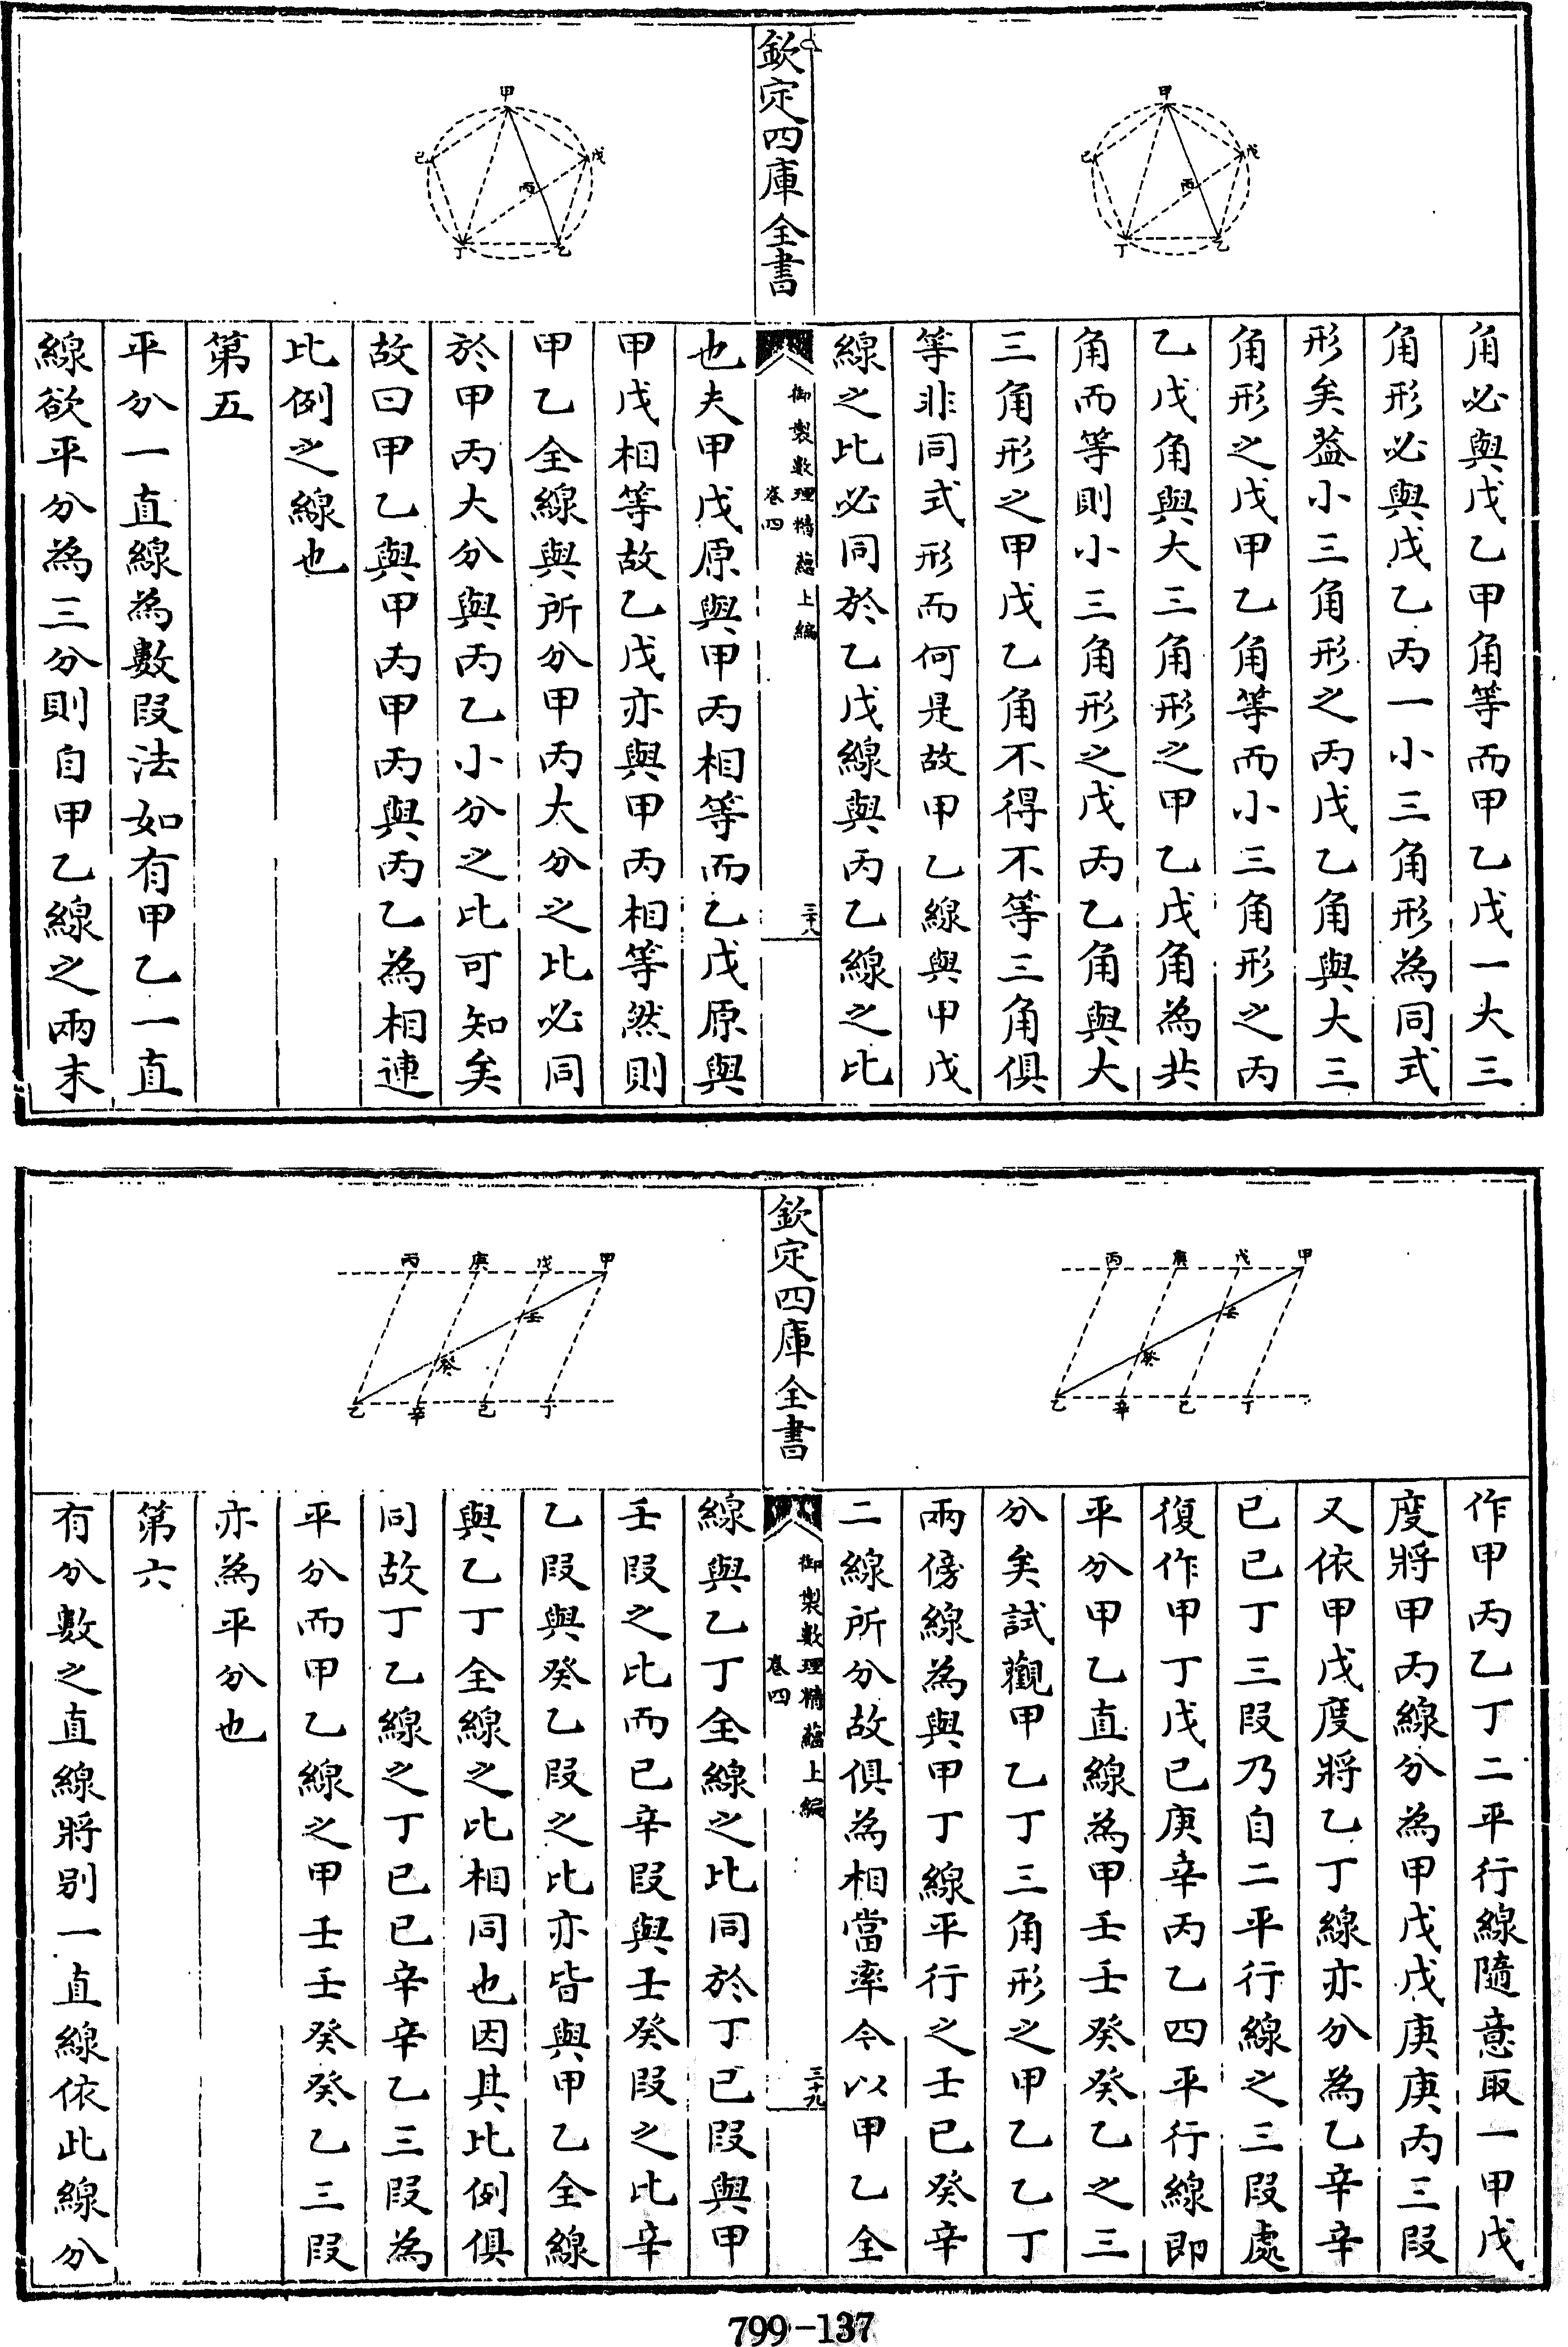 角必與戊乙甲角等而甲乙戊一大三
角形必與戊乙丙一小三角形為同式
形矣葢小三角形之丙戊乙角與大三
角形之戊甲乙角等而小三角形之丙
乙戊角與大三角形之甲乙戊角為共
角而等則小三角形之戊丙乙角與大
三角形之甲戊乙角不得不等三角俱
等非同式形而何是故甲乙線與甲戊
線之比必同於乙戊線與丙乙線之比
甲
己
戊
丙
丁
乙
欽定四庫全書
御製數理精蘊上編
卷四
三十八
也夫甲戊原與甲丙相等而乙戊原與
甲戊相等故乙戊亦與甲丙相等然則
甲乙全線與所分甲丙大分之比必同
於甲丙大分與丙乙小分之比可知矣
故曰甲乙與甲丙甲丙與丙乙為相連
比例之線也
第五
平分一直線為數段法如有甲乙一直
線欲平分為三分則自甲乙線之兩末
甲
己
戊
丙
丁
乙
作甲丙乙丁二平行線隨意取一甲戊
度將甲丙線分為甲戊戊庚庚丙三段
又依甲戊度將乙丁線亦分為乙辛辛
己己丁三段乃自二平行線之三段處
復作甲丁戊己庚辛丙乙四平行線即
平分甲乙直線為甲壬壬癸癸乙之三
分矣試觀甲乙丁三角形之甲乙乙丁
兩傍線為與甲丁線平行之壬己癸辛
二線所分故俱為相當率今以甲乙全
丙
庚
戊
甲
壬
癸
乙
辛
己
丁
欽定四庫全書
御製數理精蘊上編
卷四
三十九
線與乙丁全線之比同於丁己段與甲
壬段之比而己辛段與壬癸段之比辛
乙段與癸乙段之比亦皆與甲乙全線
與乙丁全線之比相同也因其比例俱
同故丁乙線之丁己己辛辛乙三段為
平分而甲乙線之甲壬壬癸癸乙三段
亦為平分也
第六
有分數之直線將別一直線依此線分
丙
庚
戊
甲
壬
癸
乙
辛
己
丁
799-137